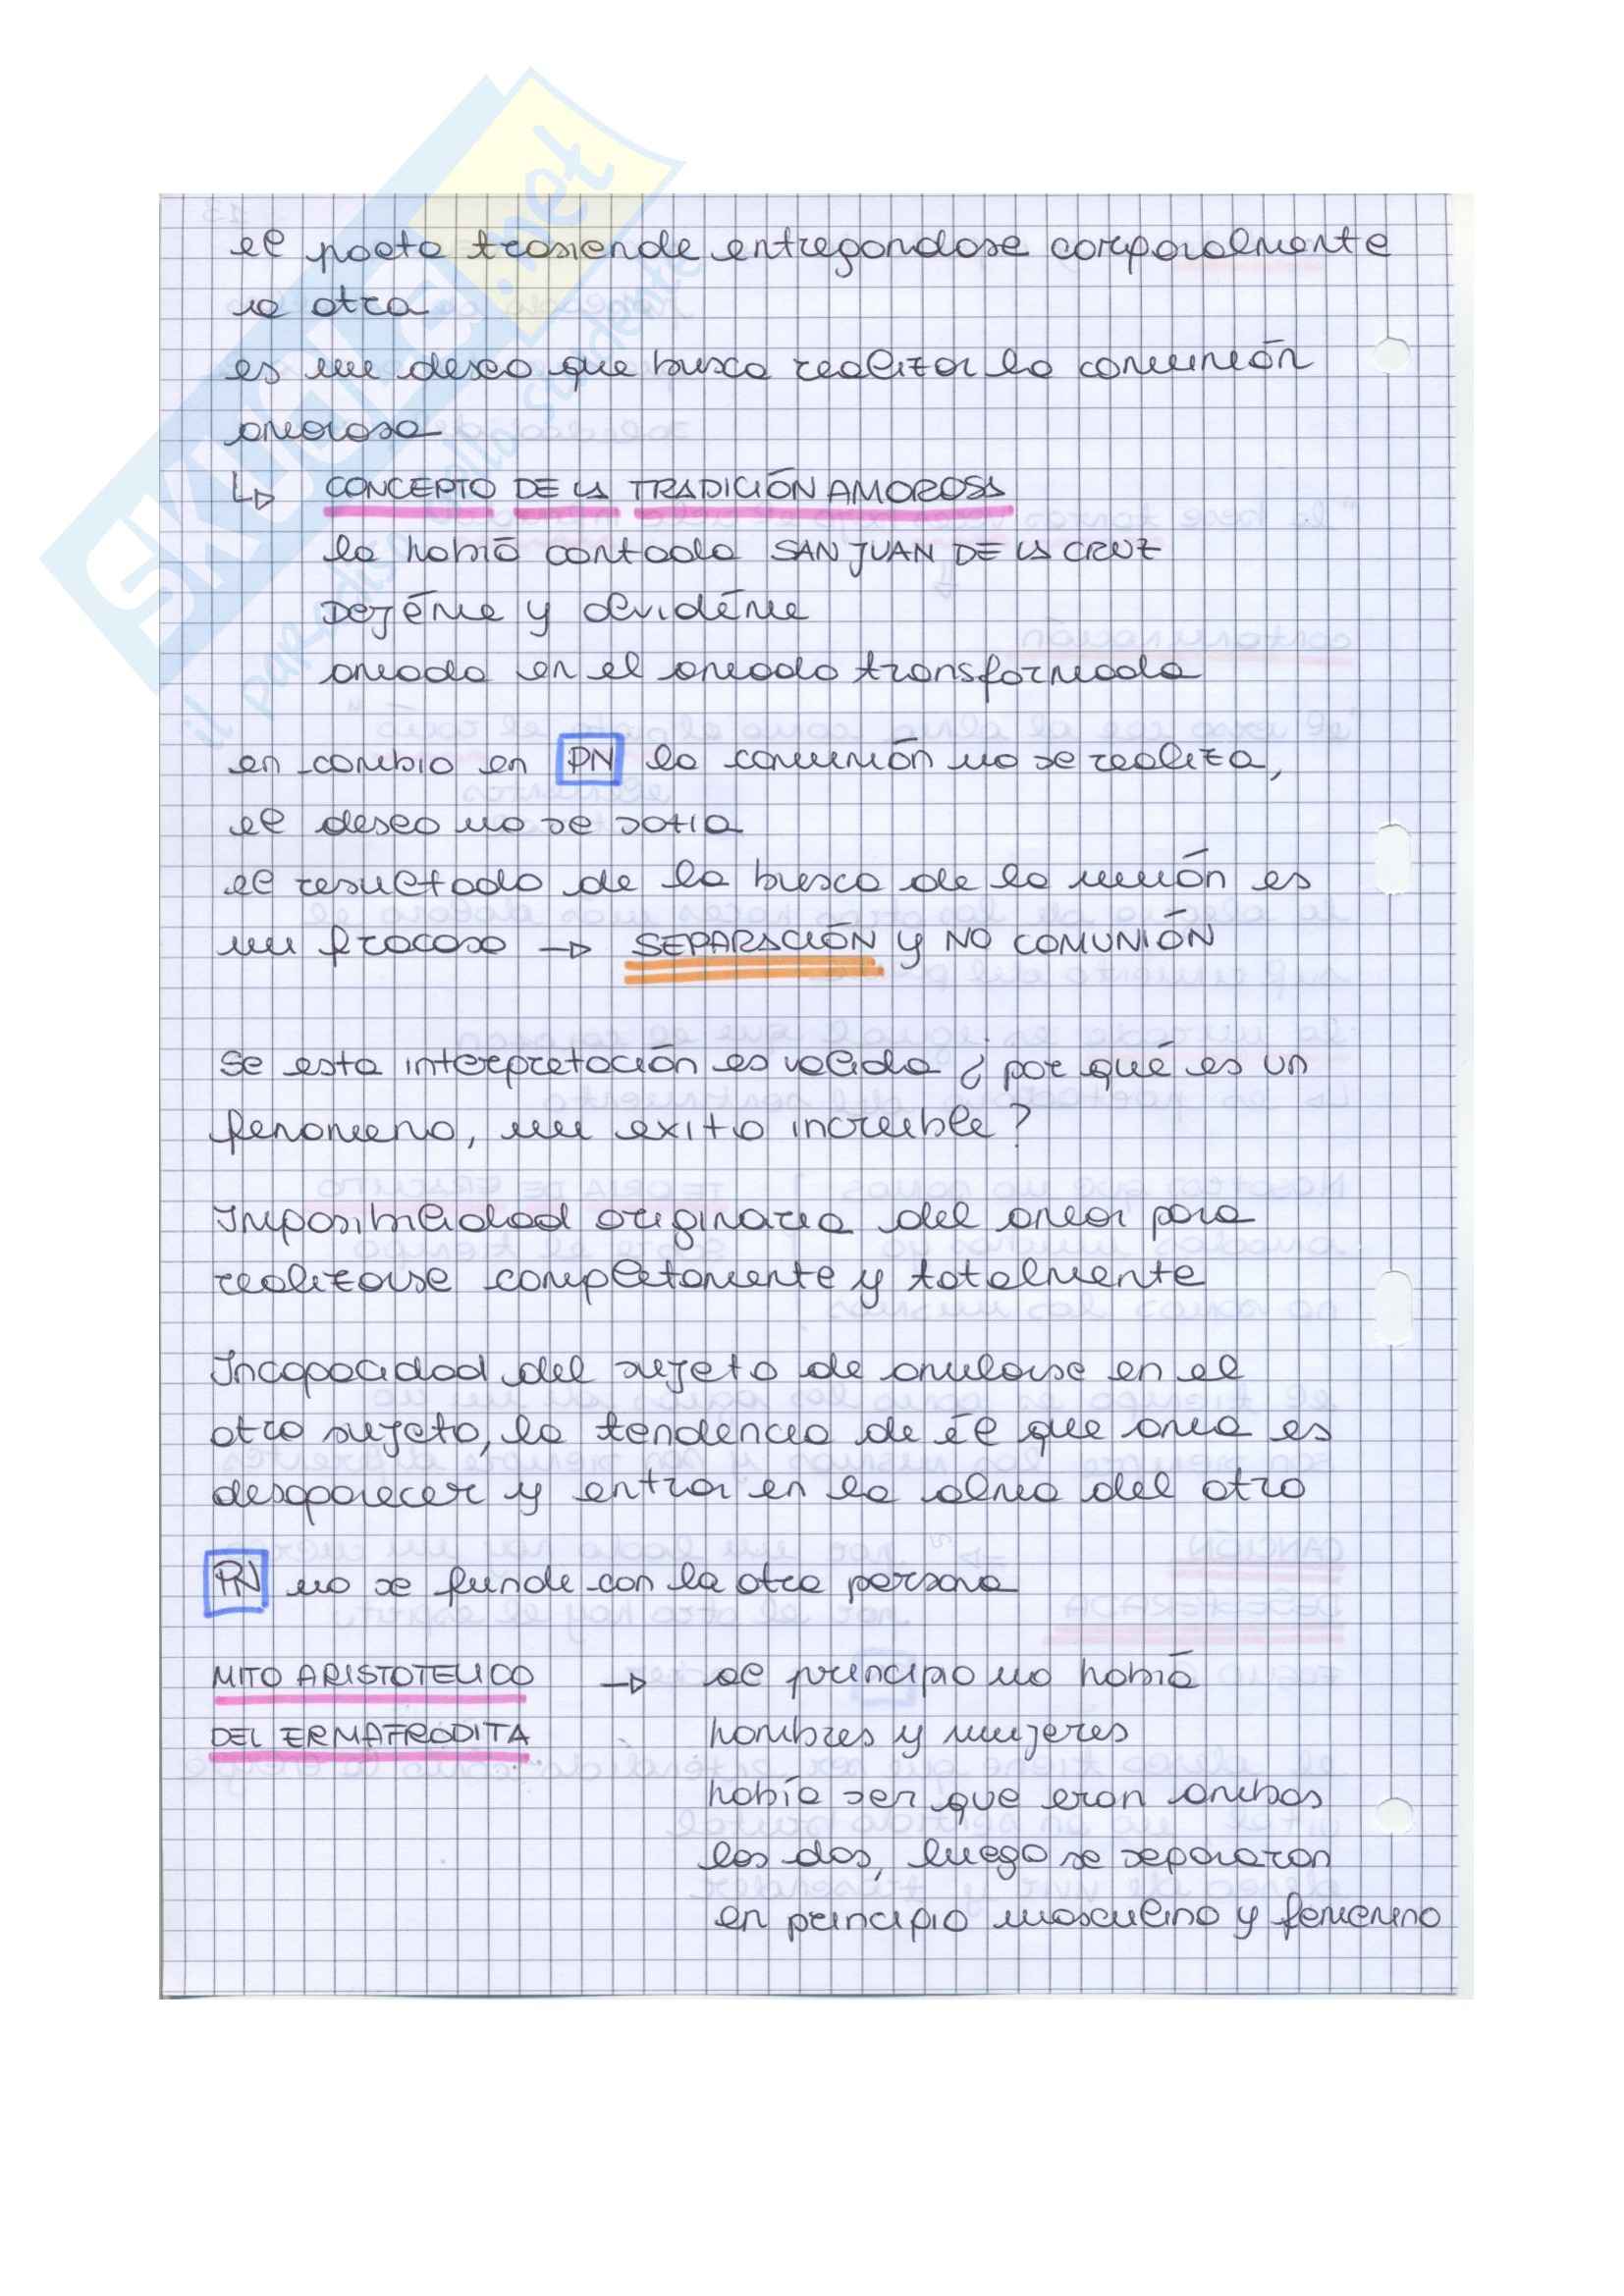 el poeta trasiende entregandose corporalmente
a otra
es un deseo que busca realizar la comunión
amorosa
↳ CONCEPTO DE LA TRADICIÓN AMOROSA
la había contada SAN JUAN DE LA CRUZ
Dejéme y olvidéme
amada en el amado transformada
en cambio en PN la comunión no se realiza,
el deseo no se satia
el resultado de la busca de la unión es
un fracaso → SEPARACIÓN y NO COMUNIÓN
Se esta interpretación es valida ¿ por qué es un
fenomeno, un exito increible?
Imposibilidad originaria del amor para
realizarse completamente y totalmente
Incapacidad del sujeto de anularse en el
otro sujeto, la tendencia de él que ama es
desaparecer y entrar en la alma del otro
PN no se funde con la otra persona
MITO ARISTOTELICO → al principio no había
DEL ERMAFRODITA hombres y mujeres
había ser que eran ambos
los dos, luego se separaron
en principio masculino y femenino
SKUOLA.net
il paradiso dello studente